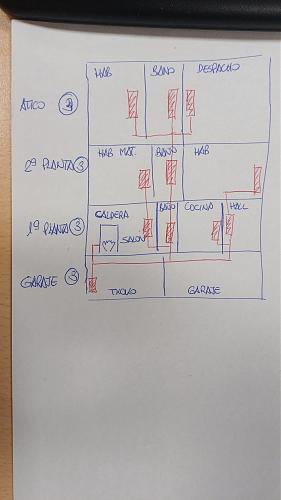 HAB BAÑO DESPACHO
ATICO 3
HAB MAT. BAÑO HAB
2ª PLANTA 3
CALDERA BAÑO COCINA HALL
1ª PLANTA 3
SALON
GARAJE 3
TXOKO GARAJE